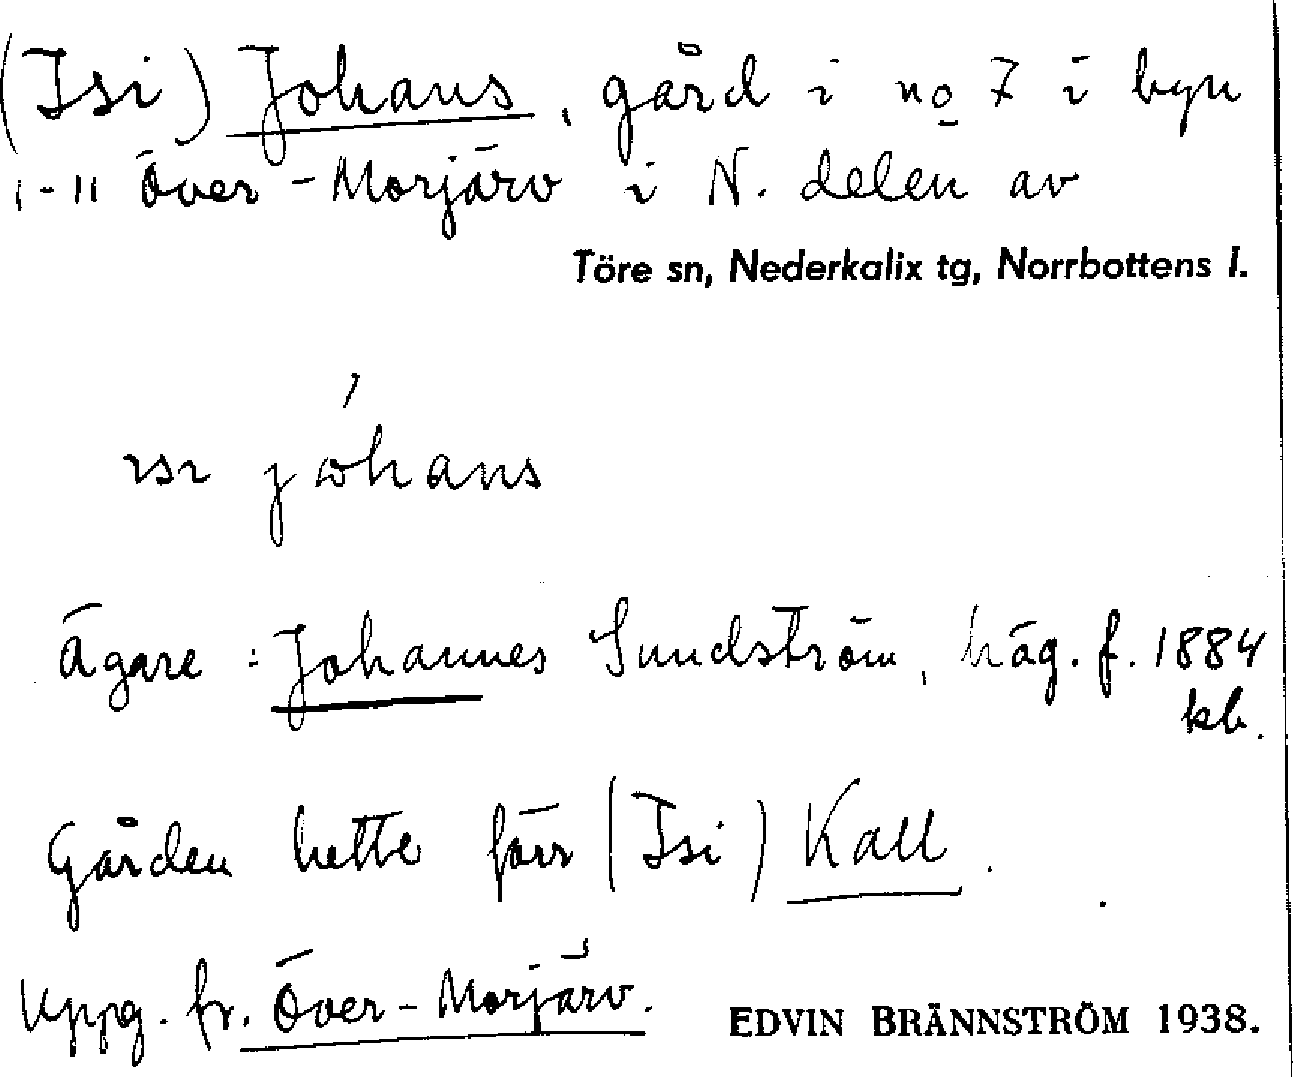 (Isi) Johans, gård i no 7 i byn
1-11 Över-Morjärv i N. delen av
Töre sn, Nederkalix tg, Norrbottens l.
ısı jóhans
Ägare: Johannes Sundström, häg. f. 1884
kb.
Gården hette förr (Isi) Kall.
Uppg. fr. Över-Morjärv. EDVIN BRÄNNSTRÖM 1938.